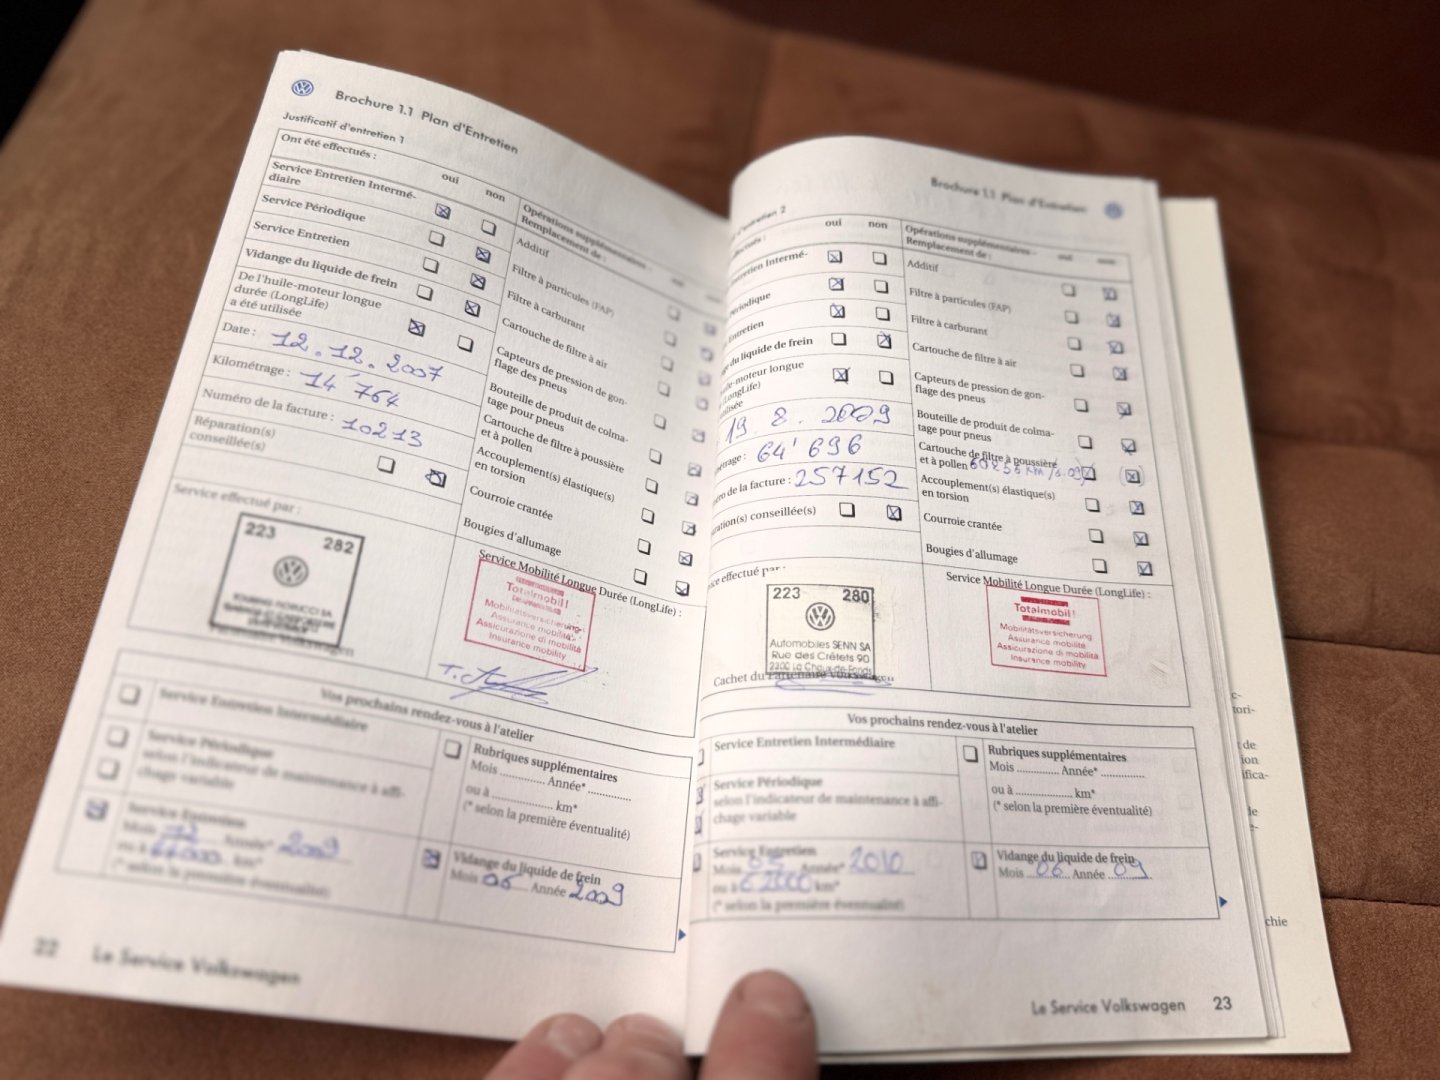 Brochure 1.1 Plan d'Entretien
Justificatif d'entretien 1
Ont été effectués :
oui non
Service Entretien Intermé-
diaire
Service Périodique
Service Entretien
Vidange du liquide de frein
De l'huile-moteur longue
durée (LongLife)
a été utilisée
Date : 12.12.2007
Kilométrage : 14'764
Numéro de la facture : 10213
Réparation(s)
conseillée(s)
Opérations supplémentaires –
Remplacement de :
Additif
Filtre à particules (FAP)
Filtre à carburant
Cartouche de filtre à air
Capteurs de pression de gon-
flage des pneus
Bouteille de produit de colma-
tage pour pneus
Cartouche de filtre à poussière
et à pollen
Accouplement(s) élastique(s)
en torsion
Courroie crantée
Bougies d'allumage
Service effectué par :
223 282
Service Mobilité Longue Durée (LongLife) :
Totalmobil!
Mobilitätsversicherung
Assurance mobilité
Assicurazione di mobilità
Insurance mobility
Vos prochains rendez-vous à l'atelier
Service Entretien Intermédiaire
Service Périodique
selon l'indicateur de maintenance à affi-
chage variable
Service Entretien
Mois Année* 2009
ou à km*
(* selon la première éventualité)
Rubriques supplémentaires
Mois .............. Année* ..............
ou à .................... km*
(* selon la première éventualité)
Vidange du liquide de frein
Mois 06 Année 2009
22 Le Service Volkswagen
Brochure 1.1 Plan d'Entretien
d'entretien 2
oui non
Entretien Intermé-
Périodique
Entretien
du liquide de frein
longue
(LongLife)
19.8.2009
64'696
de la facture : 257152
conseillée(s)
Opérations supplémentaires –
Remplacement de :
oui non
Additif
Filtre à particules (FAP)
Filtre à carburant
Cartouche de filtre à air
Capteurs de pression de gon-
flage des pneus
Bouteille de produit de colma-
tage pour pneus
Cartouche de filtre à poussière
et à pollen
Accouplement(s) élastique(s)
en torsion
Courroie crantée
Bougies d'allumage
effectué par :
223 280
Automobiles SENN SA
Rue des Crêtets 90
2300 La Chaux-de-Fonds
Cachet du Partenaire Volkswagen
Service Mobilité Longue Durée (LongLife) :
Totalmobil!
Mobilitätsversicherung
Assurance mobilité
Assicurazione di mobilità
Insurance mobility
Vos prochains rendez-vous à l'atelier
Service Entretien Intermédiaire
Service Périodique
selon l'indicateur de maintenance à affi-
chage variable
Service Entretien
Mois 05 Année* 2010
ou à km*
(* selon la première éventualité)
Rubriques supplémentaires
Mois .............. Année* ..............
ou à .................... km*
(* selon la première éventualité)
Vidange du liquide de frein
Mois 06 Année 09
Le Service Volkswagen 23